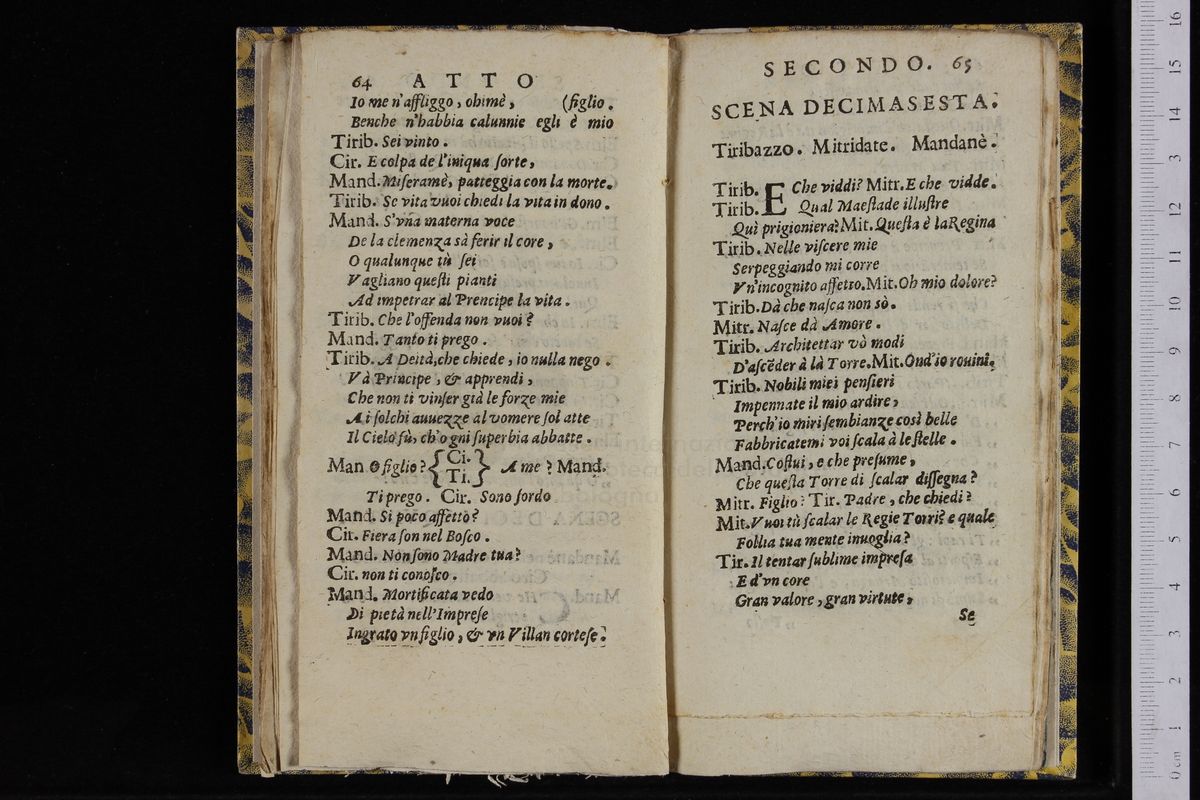 64 ATTO
Io me n'affliggo, ohimè, (figlio.
Benche n'habbia calunnie egli è mio
Tirib. Sei vinto.
Cir. E colpa de l'iniqua ſorte,
Mand. Miſeramè, patteggia con la morte.
Tirib. Se vita vuoi chiedi la vita in dono.
Mand. S'vna materna voce
De la clemenza sà ferir il core,
O qualunque tù ſei
Vagliano queſti pianti
Ad impetrar al Prencipe la vita.
Tirib. Che l'offenda non vuoi?
Mand. Tanto ti prego.
Tirib. A Deità, che chiede, io nulla nego.
Và Principe, & apprendi,
Che non ti vinſer già le forze mie
Ai ſolchi auuezze al vomere ſol atte
Il Cielo fù, ch'ogni ſuperbia abbatte.
Man O figlio? { Ci. Ti. } A me? Mand.
Ti prego. Cir. Sono ſordo
Mand. Sì poco affetto?
Cir. Fiera ſon nel Boſco.
Mand. Non ſono Madre tua?
Cir. non ti conoſco.
Mand. Mortificata vedo
Di pietà nell'Impreſe
Ingrato vn figlio, & vn Villan corteſe.
SECONDO. 65
SCENA DECIMASESTA.
Tiribazzo. Mitridate. Mandanè.
Tirib. E Che viddi? Mitr. E che vidde.
Tirib. Qual Maeſtade illuſtre
Quì prigioniera? Mit. Queſta è la Regina
Tirib. Nelle viſcere mie
Serpeggiando mi corre
Vn'incognito affetto. Mit. Oh mio dolore?
Tirib. Dà che naſca non sò.
Mitr. Naſce dà Amore.
Tirib. Architettar vò modi
D'aſcẽder à là Torre. Mit. Ond'io rouini.
Tirib. Nobili miei penſieri
Impennate il mio ardire,
Perch'io miri ſembianze così belle
Fabbricatemi voi ſcala à le ſtelle.
Mand. Coſtui, e che preſume,
Che queſta Torre di ſcalar diſſegna?
Mitr. Figlio? Tir. Padre, che chiedi?
Mit. Vuoi tù ſcalar le Regie Torri? e quale
Follia tua mente inuoglia?
Tir. Il tentar ſublime impreſa
E d'vn core
Gran valore, gran virtute,
Se